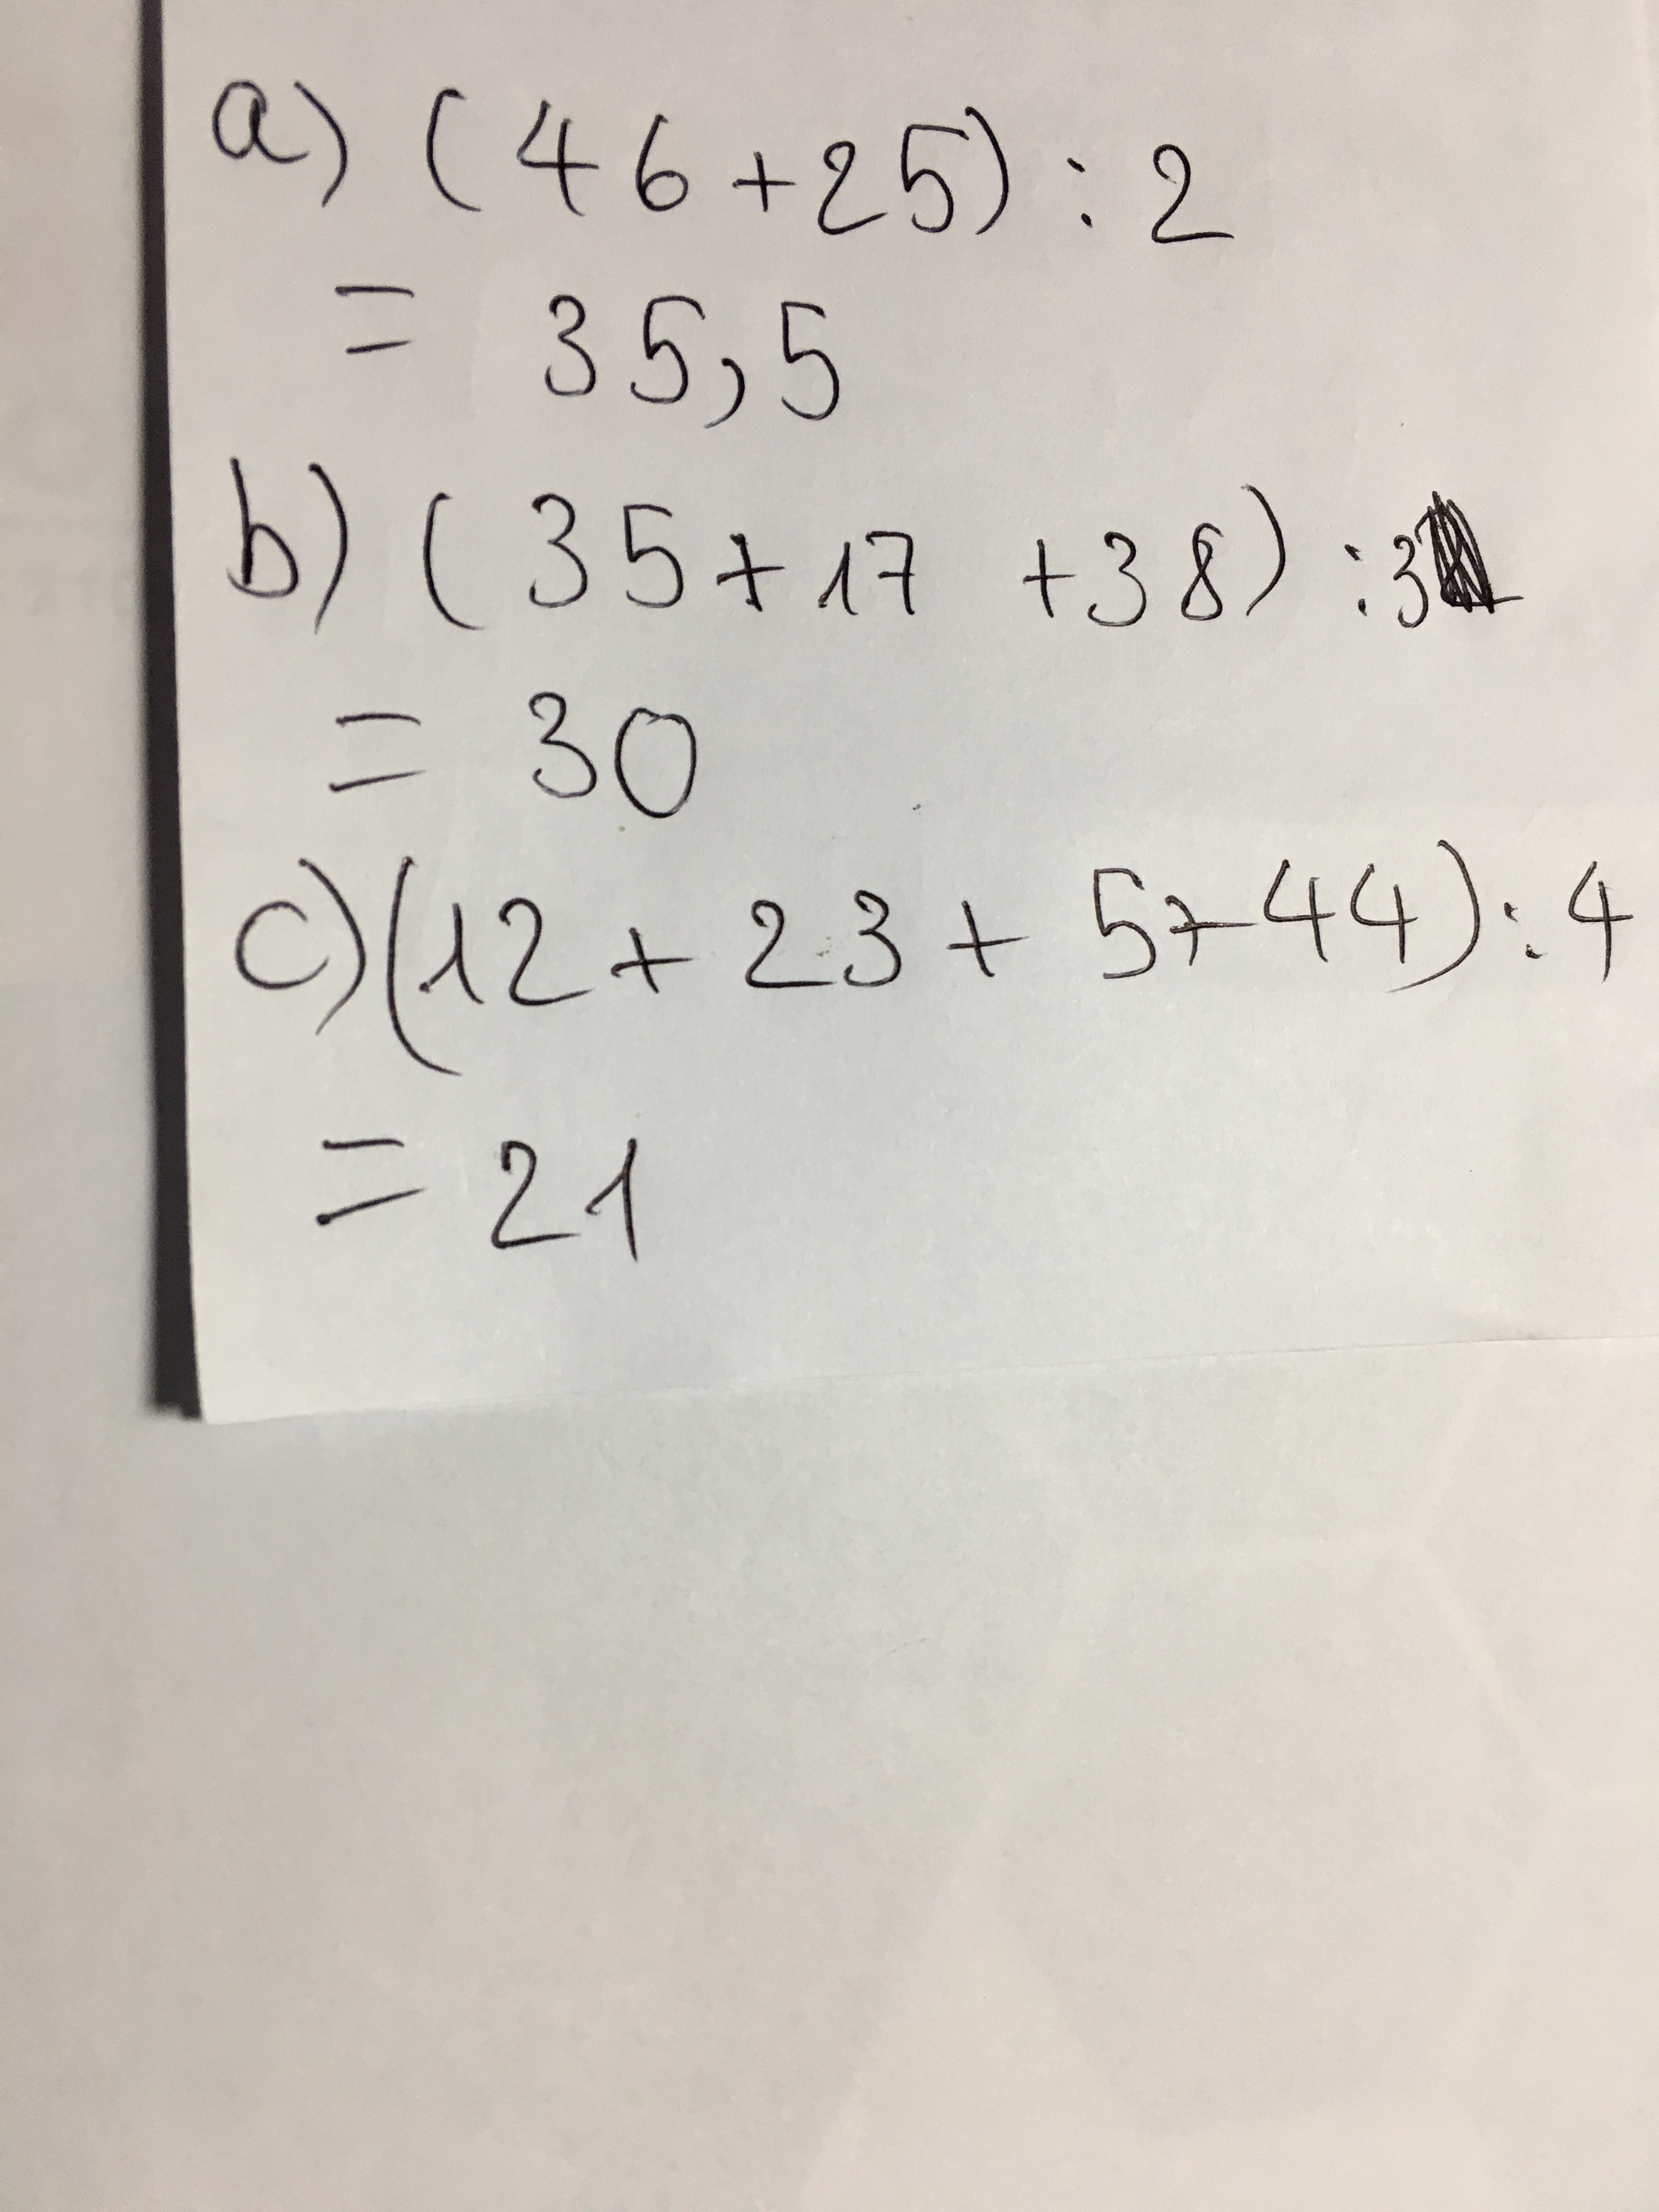 a) (46+25) : 2
= 35,5
b) (35+17 +38) :3
= 30
c) (12 + 23 + 5+44) : 4
= 21